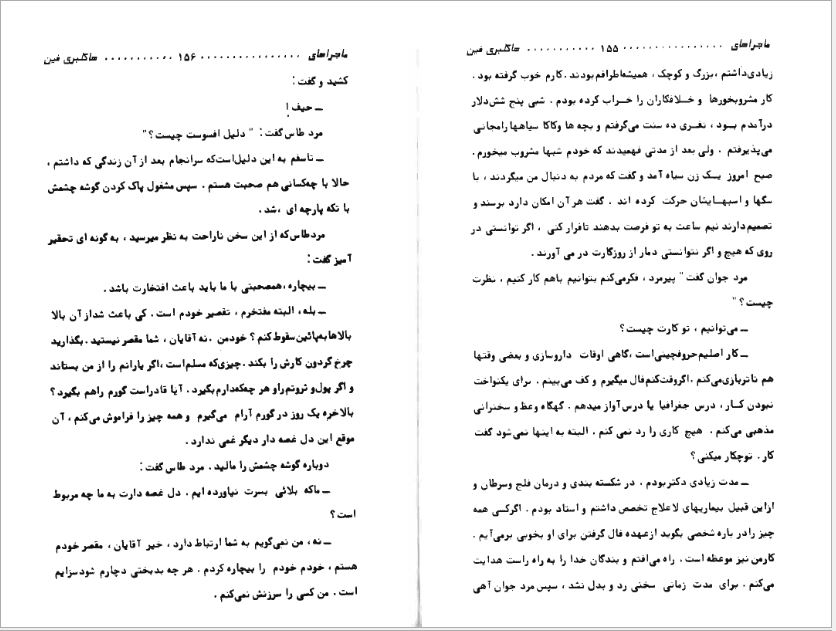 ماجراهای ................ ۱۵۵ ........... هاکلبری فین
زیادی‌داشتم ، بزرگ و کوچک ، همیشه‌اطرافم‌بودند . کارم خوب گرفته بود .
کار مشروبخورها و خلافکاران را خراب کرده بودم . شبی پنج شش‌دلار
درآمدم بود ، نفری ده سنت می‌گرفتم و بچه ها وکاکا سیاهها رامجانی
می‌پذیرفتم . ولی بعد از مدتی فهمیدند که خودم شبها مشروب میخورم .
صبح امروز یک زن سیاه آمد و گفت که مردم به دنبال من میگردند ، با
سگها و اسبهایشان حرکت کرده اند . گفت هر آن امکان دارد برسند و
تصمیم‌دارند نیم ساعت به تو فرصت بدهند تافرار کنی ، اگر توانستی در
روی که هیچ و اگر نتوانستی دمار از روزگارت در می آورند .
مرد جوان گفت " پیرمرد ، فکرمی‌کنم بتوانیم باهم کار کنیم ، نظرت
چیست ؟ "
ــ می‌توانیم ، تو کارت چیست؟
ــ کار اصلیم‌حروفچینی‌است ،گاهی اوقات داروسازی و بعضی وقتها
هم تاتربازی‌می‌کنم .اگروقت‌کنم‌فال میگیرم و کف می‌بینم . برای یکنواخت
نبودن کار ، درس جغرافیا یا درس‌آواز میدهم . گهگاه وعظ و سخنرانی
مذهبی می‌کنم . هیچ کاری را رد نمی کنم . البته به اینها نمی‌شود گفت
کار . توچکار میکنی؟
ــ مدت زیادی دکتربودم . در شکسته بندی و درمان فلج وسرطان و
ازاین قبیل بیماریهای لاعلاج تخصص داشتم و استاد بودم . اگرکسی همه
چیز را درباره شخصی بگوید ازعهده فال گرفتن برای او بخوبی برمی‌آیم .
کارمن نیز موعظه است . راه می‌افتم و بندگان خدا را به راه راست هدایت
می‌کنم . برای مدت زمانی سخنی رد و بدل نشد ، سپس مرد جوان آهی
ماجراهای ................ ۱۵۶ ........... هاکلبری فین
کشید و گفت :
ــ حیف !
مرد طاس گفت : " دلیل افسوست چیست ؟ "
ــ تاسفم به این دلیل‌است‌که سرانجام بعد از آن زندگی که داشتم ،
حالا با چه‌کسانی هم صحبت هستم . سپس مشغول پاک کردن گوشه چشمش
با تکه پارچه ای ،شد .
مردطاس‌که از این سخن ناراحت به نظر میرسید ، به گونه ای تحقیر
آمیز گفت :
ــ بیچاره ،همصحبتی با ما باید باعث افتخارت باشد .
ــ بله ، البته مفتخرم ، تقصیر خودم است . کی باعث شداز آن بالا
بالاهابه‌پائین‌سقوط کنم ؟ خودمن .نه آقایان ، شما مقصر نیستید .بگذارید
چرخ گردون کارش را بکند .چیزی‌که مسلم‌است ،اگر یارانم را از من بستاند
و اگر پول‌و ثروتم‌راو هر چه‌که‌دارم‌بگیرد . آیا قادراست گورم راهم بگیرد ؟
بالاخره یک روز در گورم آرام می‌گیرم و همه چیز را فراموش می‌کنم ، آن
موقع این دل غصه دار دیگر غمی ندارد .
دوباره گوشه چشمش را مالید . مرد طاس گفت :
ــ ماکه بلائی بسرت نیاورده ایم . دل غصه دارت به ما چه مربوط
است ؟
ــ نه ، من نمی‌گویم به شما ارتباط دارد ، خیر آقایان ، مقصر خودم
هستم ، خودم خودم را بیچاره کردم . هر چه بدبختی دچارم شودسزایم
است . من کسی را سرزنش نمی‌کنم .